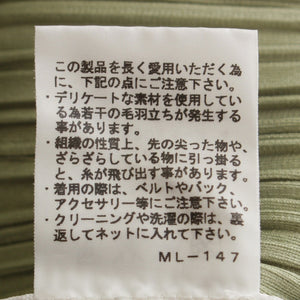 この製品を長く愛用いただく為
に、下記の点にご注意下さい。
・デリケートな素材を使用して
いる為若干の毛羽立ちが発生する
事があります。
・組織の性質上、先の尖った物や、
ざらざらしている物に引っ掛る
と、糸が飛び出す事があります。
・着用の際は、ベルトやバック、
アクセサリー等にご注意下さい。
・クリーニングや洗濯の際は、裏
返してネットに入れて下さい。
ML-147